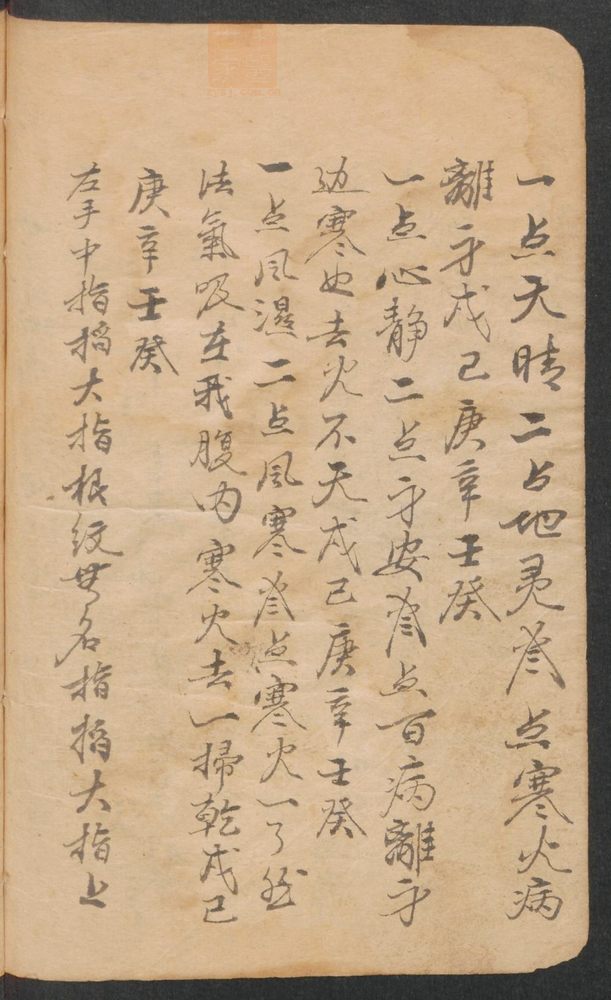 一点天晴二点地灵叁点寒火病
離身戊己庚辛壬癸
一点心静二点身安叁点百病離身
边寒也去火不天戊己庚辛壬癸
一点风濕二点风寒叁点寒火一了
法氣吸在我腹内寒火去一掃乾戊己
庚辛壬癸
左手中指掐大指根纹無名指掐大指上